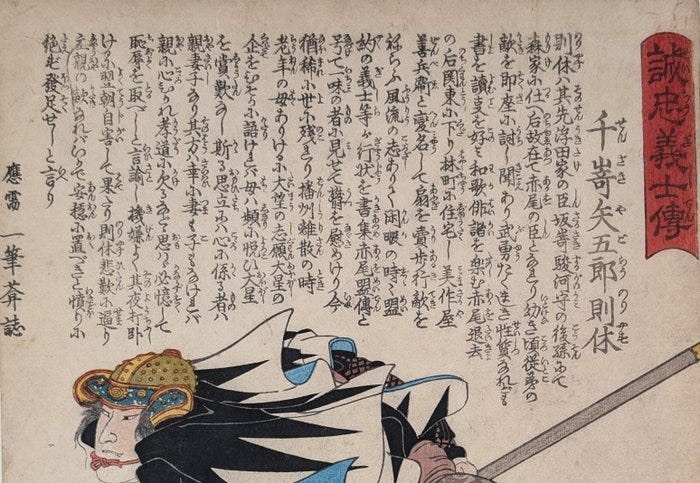 誠忠義士傳
千嵜矢五郎則休
則休ハ其先浮田家の臣坂嵜駿河守の後孫にて
森家に仕へ后故在て赤尾の臣となり幼き頃従弟の
敵を即座に討し聞あり武勇たくましき性質なれども
書を讀事を好ミ和歌俳諧を楽む赤尾退去
の后関東に下り林町に住宅し美作屋
善兵衞と変名して扇を賣歩行敵を
ねらふ風流の志ありて閑暇の時々盟
約の義士等が行状を書集赤尾盟傳と
号て一味の者に見せて勝を慰めけり今
猶稀に世に残れり播州離散の時
老年の母ありけるに大望の志願大星の
企をひそかに語けれバ母ハ頻に悦び大星の
を賞歎なし斯る思立に心に係る者ハ
親妻子なり其方ハ幸に妻も子もなけれバ
親に心ひかれ孝道に欠るなど思ハゞ必憶して
恥辱を取べしと言諭し機嫌よく其夜打臥
けるに翌朝自害して果たり則休悲歎に逼り
立親の敵なれバいかで安穏に置べきと憤りに
絶ず發足せしと言り
應需 一筆葊誌